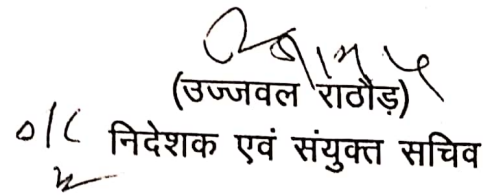 (उज्जवल राठौड़)
o/c निदेशक एवं संयुक्त सचिव